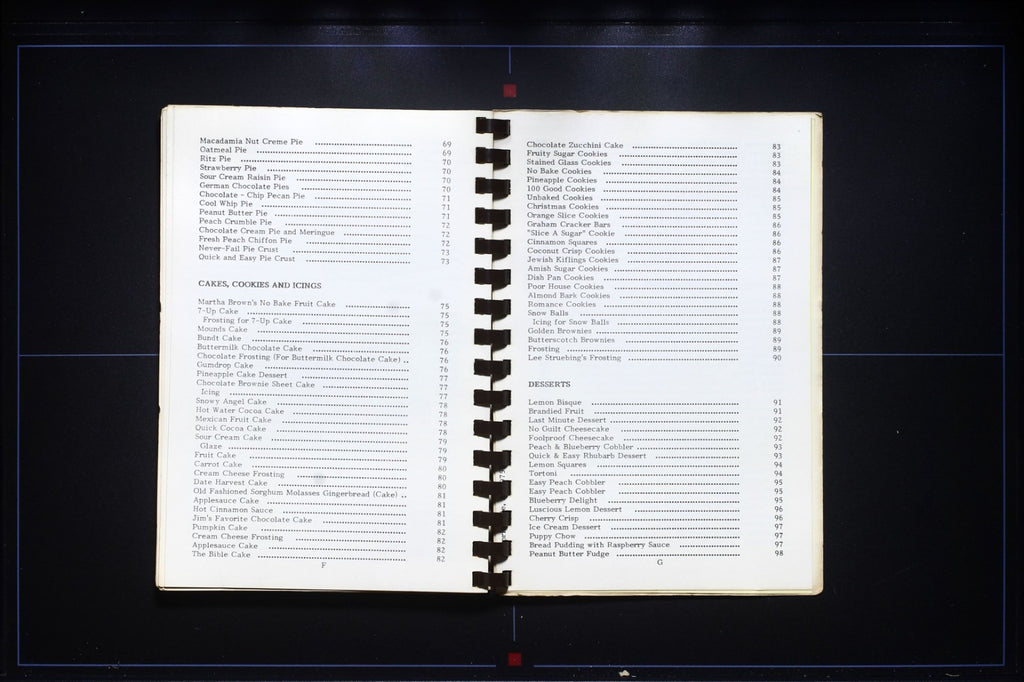 Macadamia Nut Creme Pie ........ 69
Oatmeal Pie ........ 69
Ritz Pie ........ 70
Strawberry Pie ........ 70
Sour Cream Raisin Pie ........ 70
German Chocolate Pies ........ 70
Chocolate - Chip Pecan Pie ........ 71
Cool Whip Pie ........ 71
Peanut Butter Pie ........ 71
Peach Crumble Pie ........ 72
Chocolate Cream Pie and Meringue ........ 72
Fresh Peach Chiffon Pie ........ 72
Never-Fail Pie Crust ........ 73
Quick and Easy Pie Crust ........ 73
CAKES, COOKIES AND ICINGS
Martha Brown's No Bake Fruit Cake ........ 75
7-Up Cake ........ 75
Frosting for 7-Up Cake ........ 75
Mounds Cake ........ 75
Bundt Cake ........ 76
Buttermilk Chocolate Cake ........ 76
Chocolate Frosting (For Buttermilk Chocolate Cake) .. 76
Gumdrop Cake ........ 76
Pineapple Cake Dessert ........ 77
Chocolate Brownie Sheet Cake ........ 77
Icing ........ 77
Snowy Angel Cake ........ 78
Hot Water Cocoa Cake ........ 78
Mexican Fruit Cake ........ 78
Quick Cocoa Cake ........ 78
Sour Cream Cake ........ 79
Glaze ........ 79
Fruit Cake ........ 79
Carrot Cake ........ 80
Cream Cheese Frosting ........ 80
Date Harvest Cake ........ 80
Old Fashioned Sorghum Molasses Gingerbread (Cake) .. 81
Applesauce Cake ........ 81
Hot Cinnamon Sauce ........ 81
Jim's Favorite Chocolate Cake ........ 81
Pumpkin Cake ........ 82
Cream Cheese Frosting ........ 82
Applesauce Cake ........ 82
The Bible Cake ........ 82
F
Chocolate Zucchini Cake ........ 83
Fruity Sugar Cookies ........ 83
Stained Glass Cookies ........ 83
No Bake Cookies ........ 84
Pineapple Cookies ........ 84
100 Good Cookies ........ 84
Unbaked Cookies ........ 85
Christmas Cookies ........ 85
Orange Slice Cookies ........ 85
Graham Cracker Bars ........ 86
"Slice A Sugar" Cookie ........ 86
Cinnamon Squares ........ 86
Coconut Crisp Cookies ........ 86
Jewish Kiflings Cookies ........ 87
Amish Sugar Cookies ........ 87
Dish Pan Cookies ........ 87
Poor House Cookies ........ 88
Almond Bark Cookies ........ 88
Romance Cookies ........ 88
Snow Balls ........ 88
Icing for Snow Balls ........ 88
Golden Brownies ........ 89
Butterscotch Brownies ........ 89
Frosting ........ 89
Lee Struebing's Frosting ........ 90
DESSERTS
Lemon Bisque ........ 91
Brandied Fruit ........ 91
Last Minute Dessert ........ 92
No Guilt Cheesecake ........ 92
Foolproof Cheesecake ........ 92
Peach & Blueberry Cobbler ........ 93
Quick & Easy Rhubarb Dessert ........ 93
Lemon Squares ........ 94
Tortoni ........ 94
Easy Peach Cobbler ........ 95
Easy Peach Cobbler ........ 95
Blueberry Delight ........ 95
Luscious Lemon Dessert ........ 96
Cherry Crisp ........ 96
Ice Cream Dessert ........ 97
Puppy Chow ........ 97
Bread Pudding with Raspberry Sauce ........ 97
Peanut Butter Fudge ........ 98
G